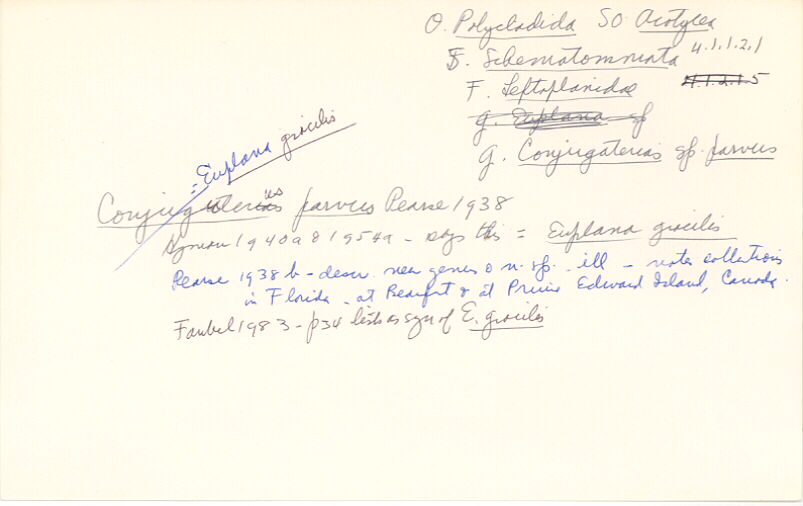 O. Polycladida SO. Acotylea
S. Schematommata 4.1.1.2.1
F. Leptoplanidae 4.1.2.1.5
g. Euplana sp
g. Conjugaterias sp. parvus
= Euplana gracilis
Conjuguterus parvus Pearse 1938
Hyman 1940a & 1954a - says this = Euplana gracilis
Pearse 1938b - descr. new genus & n. sp. - ill - notes collections
in Florida - at Beaufort & at Prince Edward Island, Canada.
Faubel 1983 - p34 lists as syn of E. gracilis